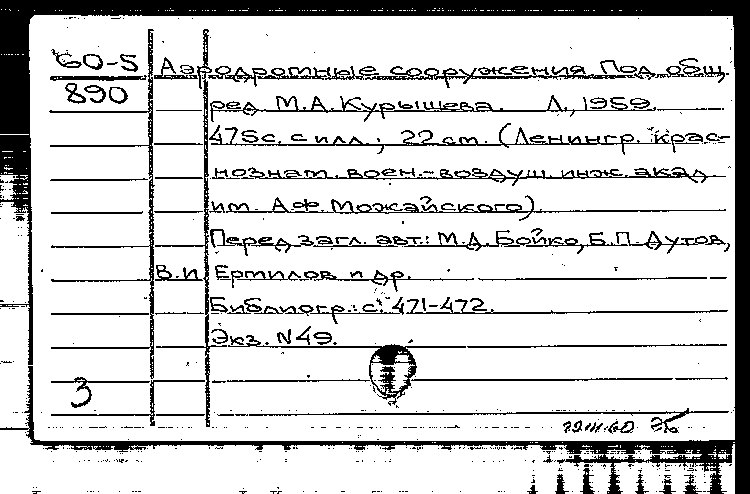 60-5
890
Аэродромные сооружения Под общ.
ред. М.А. Курышева. Л., 1959.
475 с. с илл.; 22 см. (Ленингр. крас-
нознам. воен.-воздуш. инж. акад.
им. А.Ф. Можайского)
Перед загл. авт.: М.Д. Бойко, Б.П. Дутов,
В.И. Ермилов и др.
Библиогр.: с. 471-472.
Экз. N49.
3